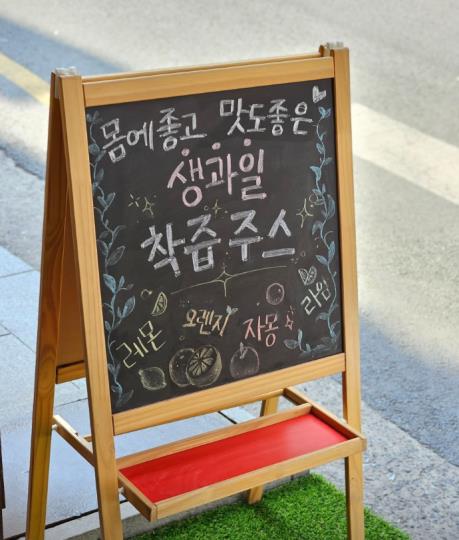 몸에좋고 맛도좋은
생과일
착즙주스
레몬 오렌지 자몽 라임